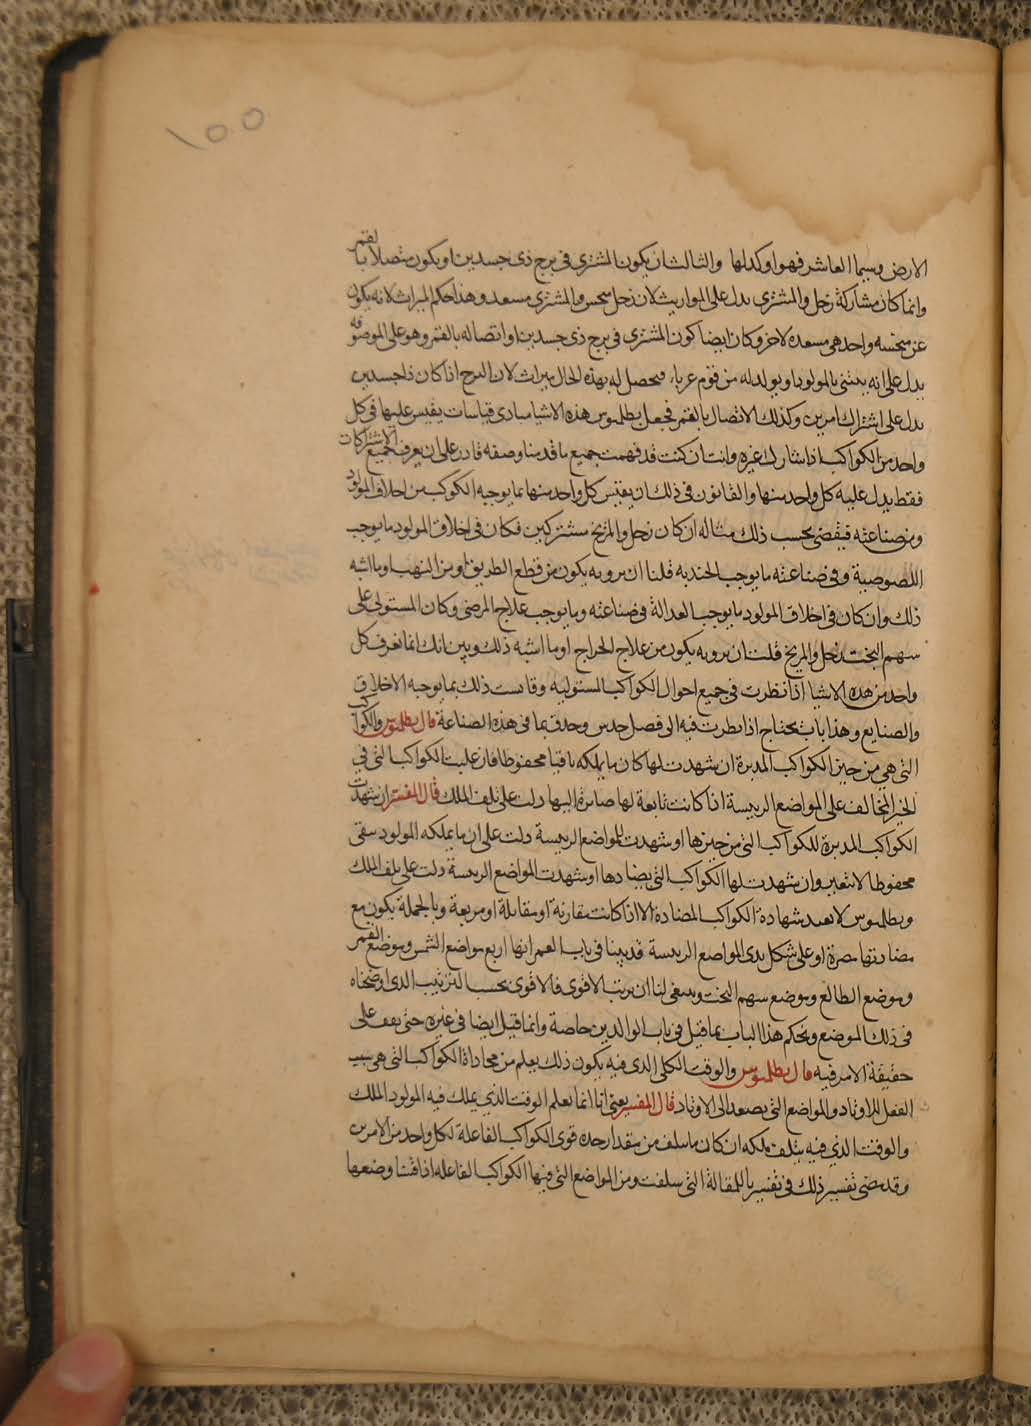 ١٥٥
الارض وسيما العاشر فهو اوكد لها والثالث ان يكون المشتري في برج ذي جسدين او يكون متصلا بالقمر
وانما كان مشاركة زحل والمشتري يدل على المواريث لان زحل منحس والمشتري مسعد وهذا حكم الميراث لانه يكون
عن منحسه واحد هي مسعده لاخر وكان ايضا كون المشتري في برج ذي جسدين او اتصاله بالقمر وهو على الموصوفه
يدل على انه يعتني بالمولود او يولد له من قوم غربا، فيحصل له بهذه الحال ميراث لان البرج اذا كان ذا جسدين
يدل على اشتراك امرين وكذلك الاتصال بالقمر فجعل بطلميوس هذه الاشيا مبادي قياسات يقيس عليها في كل
واحد من الكواكب اذا شارك غيره وانت ان كنت قد فهمت جميع ما قدمنا وصفه قادر على ان يعرف جميع الاشتراكات
فقط يدل عليه كل واحد منها والقانون في ذلك ان يقيس كل واحد منها بما يوجبه الكوكب من اخلاق المولود
ومن صناعته فيقضي بحسب ذلك مثاله ان كان زحل والمريخ مشتركين فكان في اخلاق المولود ما يوجب
اللصوصية وفي صناعته ما يوجب الجنديه قلنا ان ثروته يكون من قطع الطريق او من النهب او ما اشبه
ذلك وان كان في اخلاق المولود ما يوجب العدالة في صناعته وما يوجب علاج المرضي وكان المستولي على
سهم البخت زحل والمريخ قلت ان ثروته يكون من علاج الجراح او ما اشبه ذلك وبين انك انما تعرف كل
واحد من هذه الاشيا اذا نظرت في جميع احوال الكواكب المستوليه وقايست ذلك بما يوجبه الاخلاق
والصنايع وهذا باب يحتاج اذا نظرت فيه الى فضل حدس وحذق بما في هذه الصناعة قال بطلميوس والكواكب
التي هي من حيز الكواكب المدبرة ان شهدت لها كان ما يملكه باقيا محفوظا فان غلبت الكواكب التي في
الحيز المخالف على المواضع الرييسة اذا كانت تابعة لها صايرة اليها دلت على تلف الملك قال المفسر ان شهدت
الكواكب المدبرة للكواكب التي من حيزها او شهدت للمواضع الرييسة دلت على ان ما يملكه المولود يبقى
محفوظا لا يتغير وان شهدت لها الكواكب التي يضادها او شهدت المواضع الرييسة دلت على تلف الملك
وبطلميوس لا يعد شهادة الكواكب المضادة الا اذا كانت مقارنة او مقابلة او مربعة وبالجملة يكون مع
مضادتها مضرة او على شكل يدي المواضع الرييسة قد بينا في باب العمر انها اربع مواضع الشمس وموضع القمر
وموضع الطالع وموضع سهم البخت وينبغي لنا ان نرتب الاقوي فالاقوي بحسب الترتيب الذي اوضحناه
في ذلك الموضع ونحكم هذا الباب بما قيل في باب الوالدين خاصة وانما قيل ايضا في غيره حتى يقف على
حقيقة الامر فيه قال بطلميوس والوقت الكلي الذي فيه يكون ذلك يعلم من محاذاة الكواكب التي هي سبب
الفعل للاوتاد والمواضع التي يصعد الى الاوتاد قال المفسر يعني انا انما نعلم الوقت الذي يملك فيه المولود الملك
والوقت الذي فيه يتلف ملكه ان كان ما سلف من مقدار حده قوي الكواكب الفاعلة لكل واحد من الامرين
وقد مضى تفسير ذلك في تفسيرنا للمقالة التي سلفت ومن المواضع التي فيها الكواكب الفاعله اذا اقمنا وضعها